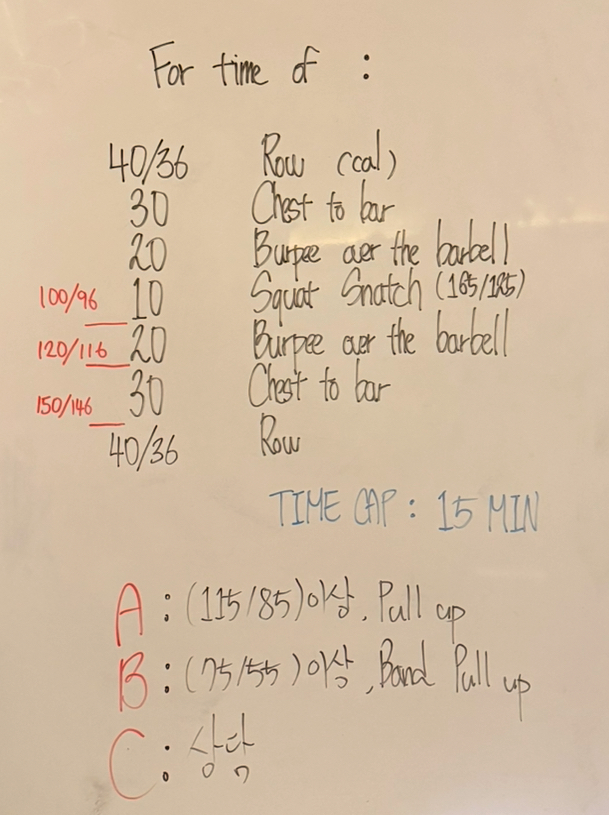 For time of :
40/36 Row (cal)
30 Chest to bar
20 Burpee over the barbell
100/96 10 Squat Snatch (185/125)
120/116 20 Burpee over the barbell
150/146 30 Chest to bar
40/36 Row
TIME CAP : 15 MIN
A : (115/85)이상, Pull up
B : (75/55)이상, Band Pull up
C : 상담